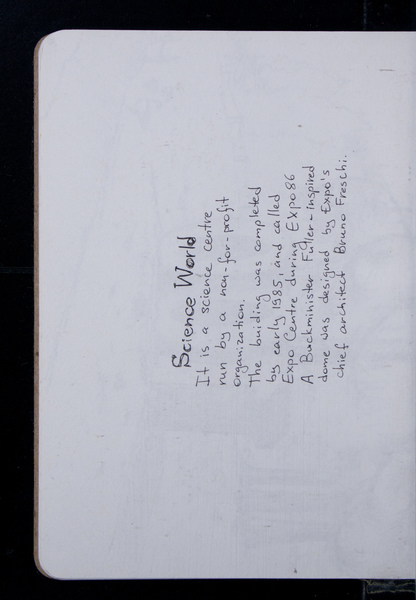 Science World
It is a science centre
run by a non-for-profit
organization.
The buiding was completed
by early 1985, and called
Expo Centre during Expo86
A Buckminister Fuller-inspired
dome was designed by Expo's
chief architect Bruno Freschi.